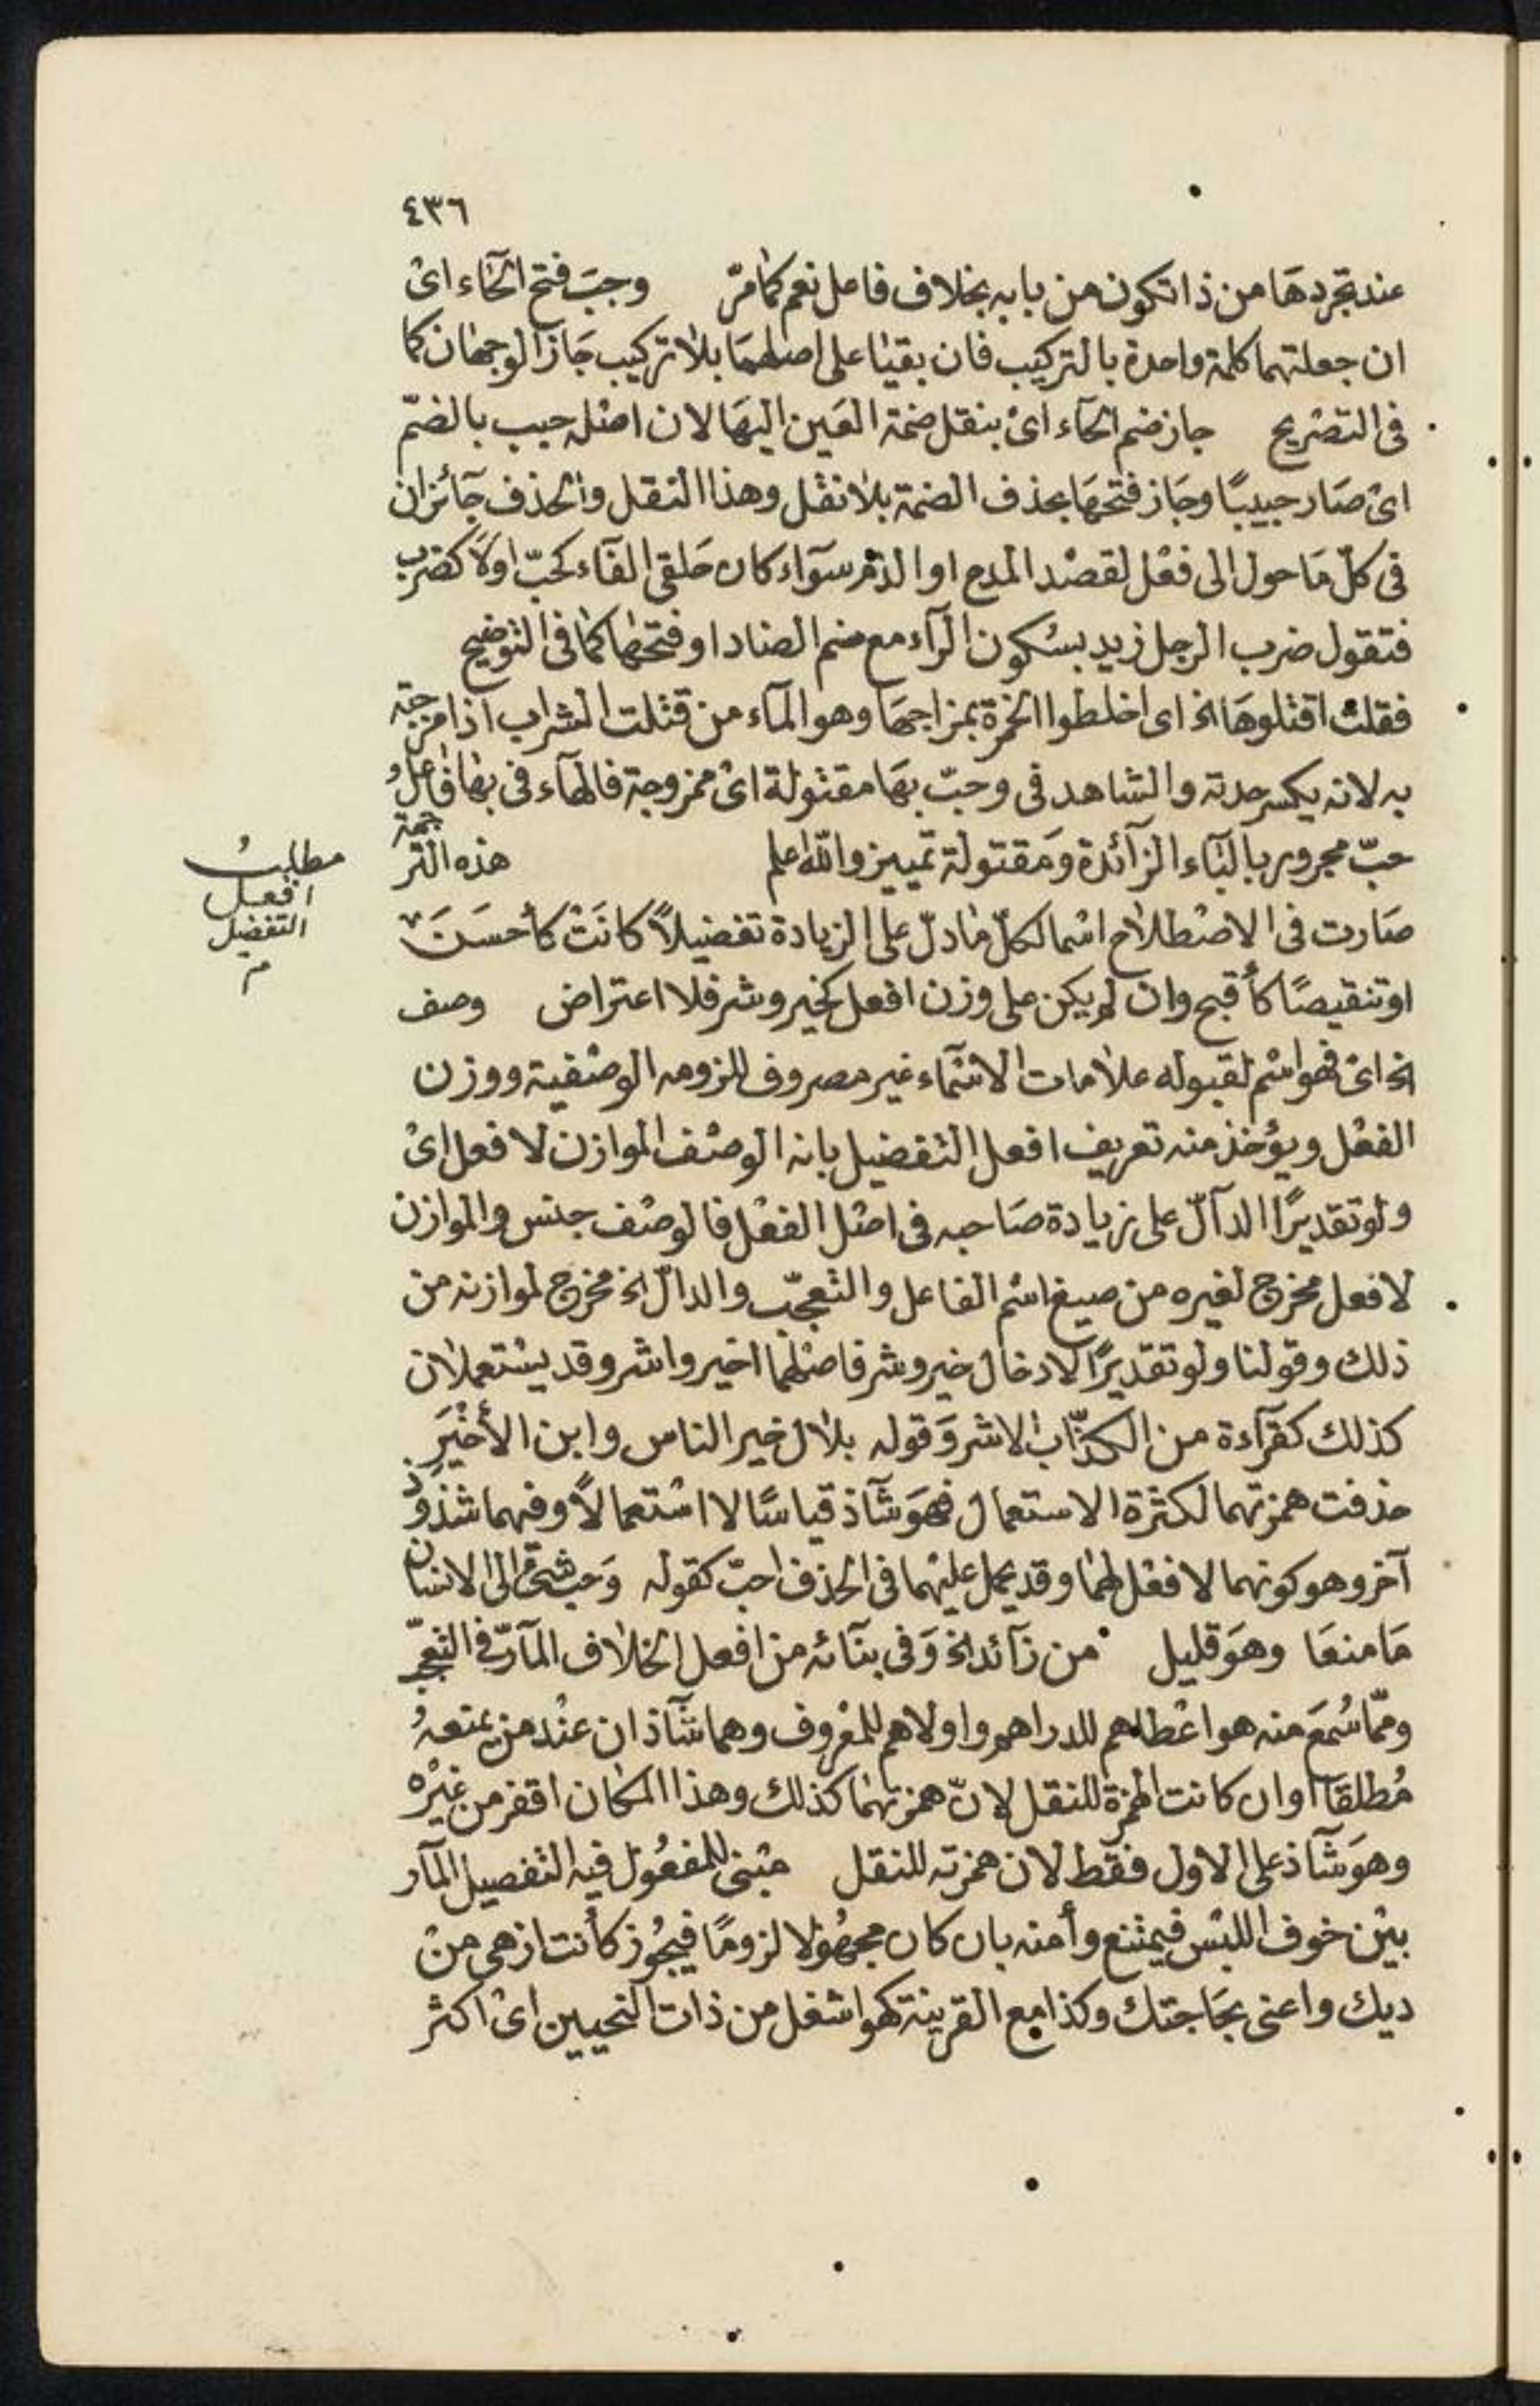 ٤٣٦
عند تجردها من ذا تكون من بابه بخلاف فاعل نعم كما مرّ وجب فتح الحاء اى
ان جعلتهما كلمة واحدة بالتركيب فان بقيا على اصلهما بلا تركيب جاز الوجهان كما
فى التصريح جاز ضم الحآء اى بنقل ضمة العين اليها لان اصله حبب بالضمّ
اى صار حبيبًا وجاز فتحها بحذف الضمة بلا نقل وهذا النقل والحذف جآئزان
فى كلّ ما حول الى فعل لقصد المدح او الذم سوآء كان حلقى الفآء كحبّ اولا كضرب
فتقول ضرب الرجل زيد بسكون الرآء مع ضم الضاد او فتحها كما فى التوضيح
فقلت اقتلوها الخ اى اخلطوا الخمرة بمزاجها وهو المآء من قتلت الشراب اذا مزجته
به لانه يكسر حدته والشاهد فى وحبّ بها مقتولة اى ممزوجة فالهآء فى بها فاعل و
حبّ مجرور بالبآء الزآئدة ومقتولة تمييز والله اعلم هذه الترجمة
صارت فى الاصطلاح اسما لكلّ ما دلّ على الزيادة تفضيلاً كانت كأحسَنَ
او تنقيصًا كأقبح وان لم يكن على وزن افعل كخير وشر فلا اعتراض وصف
الخ اى فهو اسم لقبوله علامات الاسمآء غير مصروف للزومه الوصفية ووزن
الفعل ويؤخذ منه تعريف افعل التفضيل بانه الوصف الموازن لافعل اى
ولو تقديرًا الدآلّ على زيادة صاحبه فى اصل الفعل فالوصف جنس والموازن
لافعل مخرج لغيره من صيغ اسم الفاعل والتعجّب والدالّ الخ مخرج لموازنه من
ذلك وقولنا ولو تقديرًا لادخال خير وشر فاصلهما اخير واشر وقد يستعملان
كذلك كقرآءة من الكذّاب الاشر وقوله بلال خير الناس وابن الأخْيَرِ
حذفت همزتهما لكثرة الاستعمال فهو شآذ قياسًا لا استعمالاً وفيهما شذوذ
آخر وهو كونهما لا فعل لهما وقد يحمل عليهما فى الحذف احبّ كقوله وحب شئ الى الانسان
ما منعا وهو قليل من زآئد الخ وفى بنآئه من افعل الخلاف المآرّ فى التعجّب
وممّا سُمع منه هو اعطاهم للدراهم واولاهم للمعروف وهما شآذان عند من يمنعهُ
مُطلقا او ان كانت الهمزة للنقل لانّ همزتهما كذلك وهذا المكان اقفر من غيره
وهو شآذ على الاول فقط لان همزته للنقل مبنى للمفعول فيه التفصيل المآر
بين خوف اللبس فيمتنع وأمنه بان كان مجهولا لزومًا فيجُوز كأنت ازهى من
ديك واعنى بحاجتك وكذا مع القرينة كهو اشغل من ذات النحيين اى اكثر
مطلبُ
افعل
التفضيل